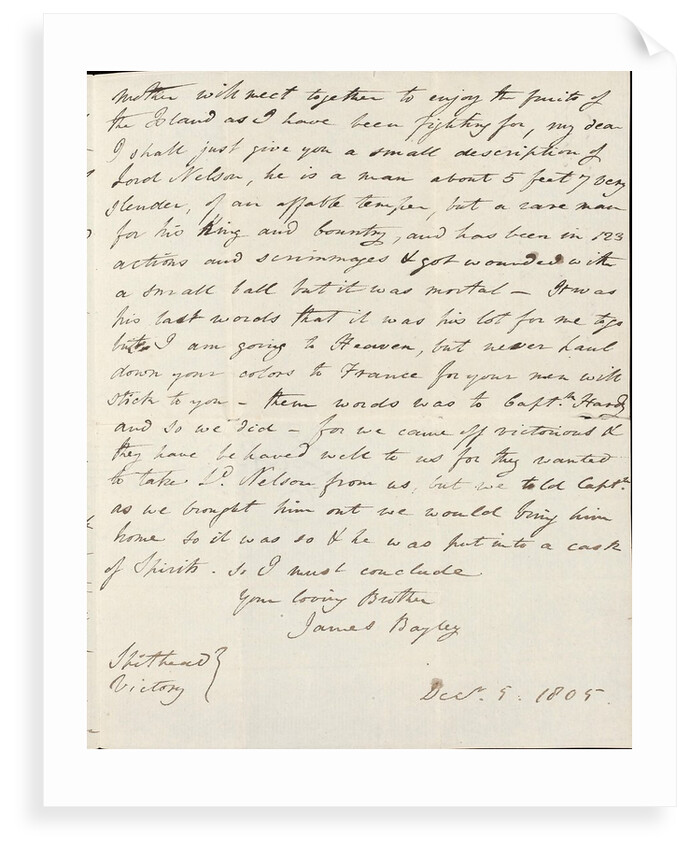 Mother will meet together to enjoy the fruits of
the Island as I have been fighting for, my dear
I shall just give you a small description of
Lord Nelson, he is a man about 5 feet 7 very
slender, of an affable temper, but a rare man
for his King and Country, and has been in 123
actions and scrimmages & got wounded with
a small ball but it was mortal – It was
his last words that it was his lot for me to go
but I am going to Heaven, but never haul
down your colors to France for your men will
stick to you – them words was to Captn. Hardy
and so we did – for we came off victorious &
they have behaved well to us for they wanted
to take Ld. Nelson from us, but we told Captn.
as we brought him out we would bring him
home so it was so & he was put into a cask
of Spirits. So I must conclude
Your loving Brother
James Bagley
Spithead }
Victory
Decr. 5. 1805.